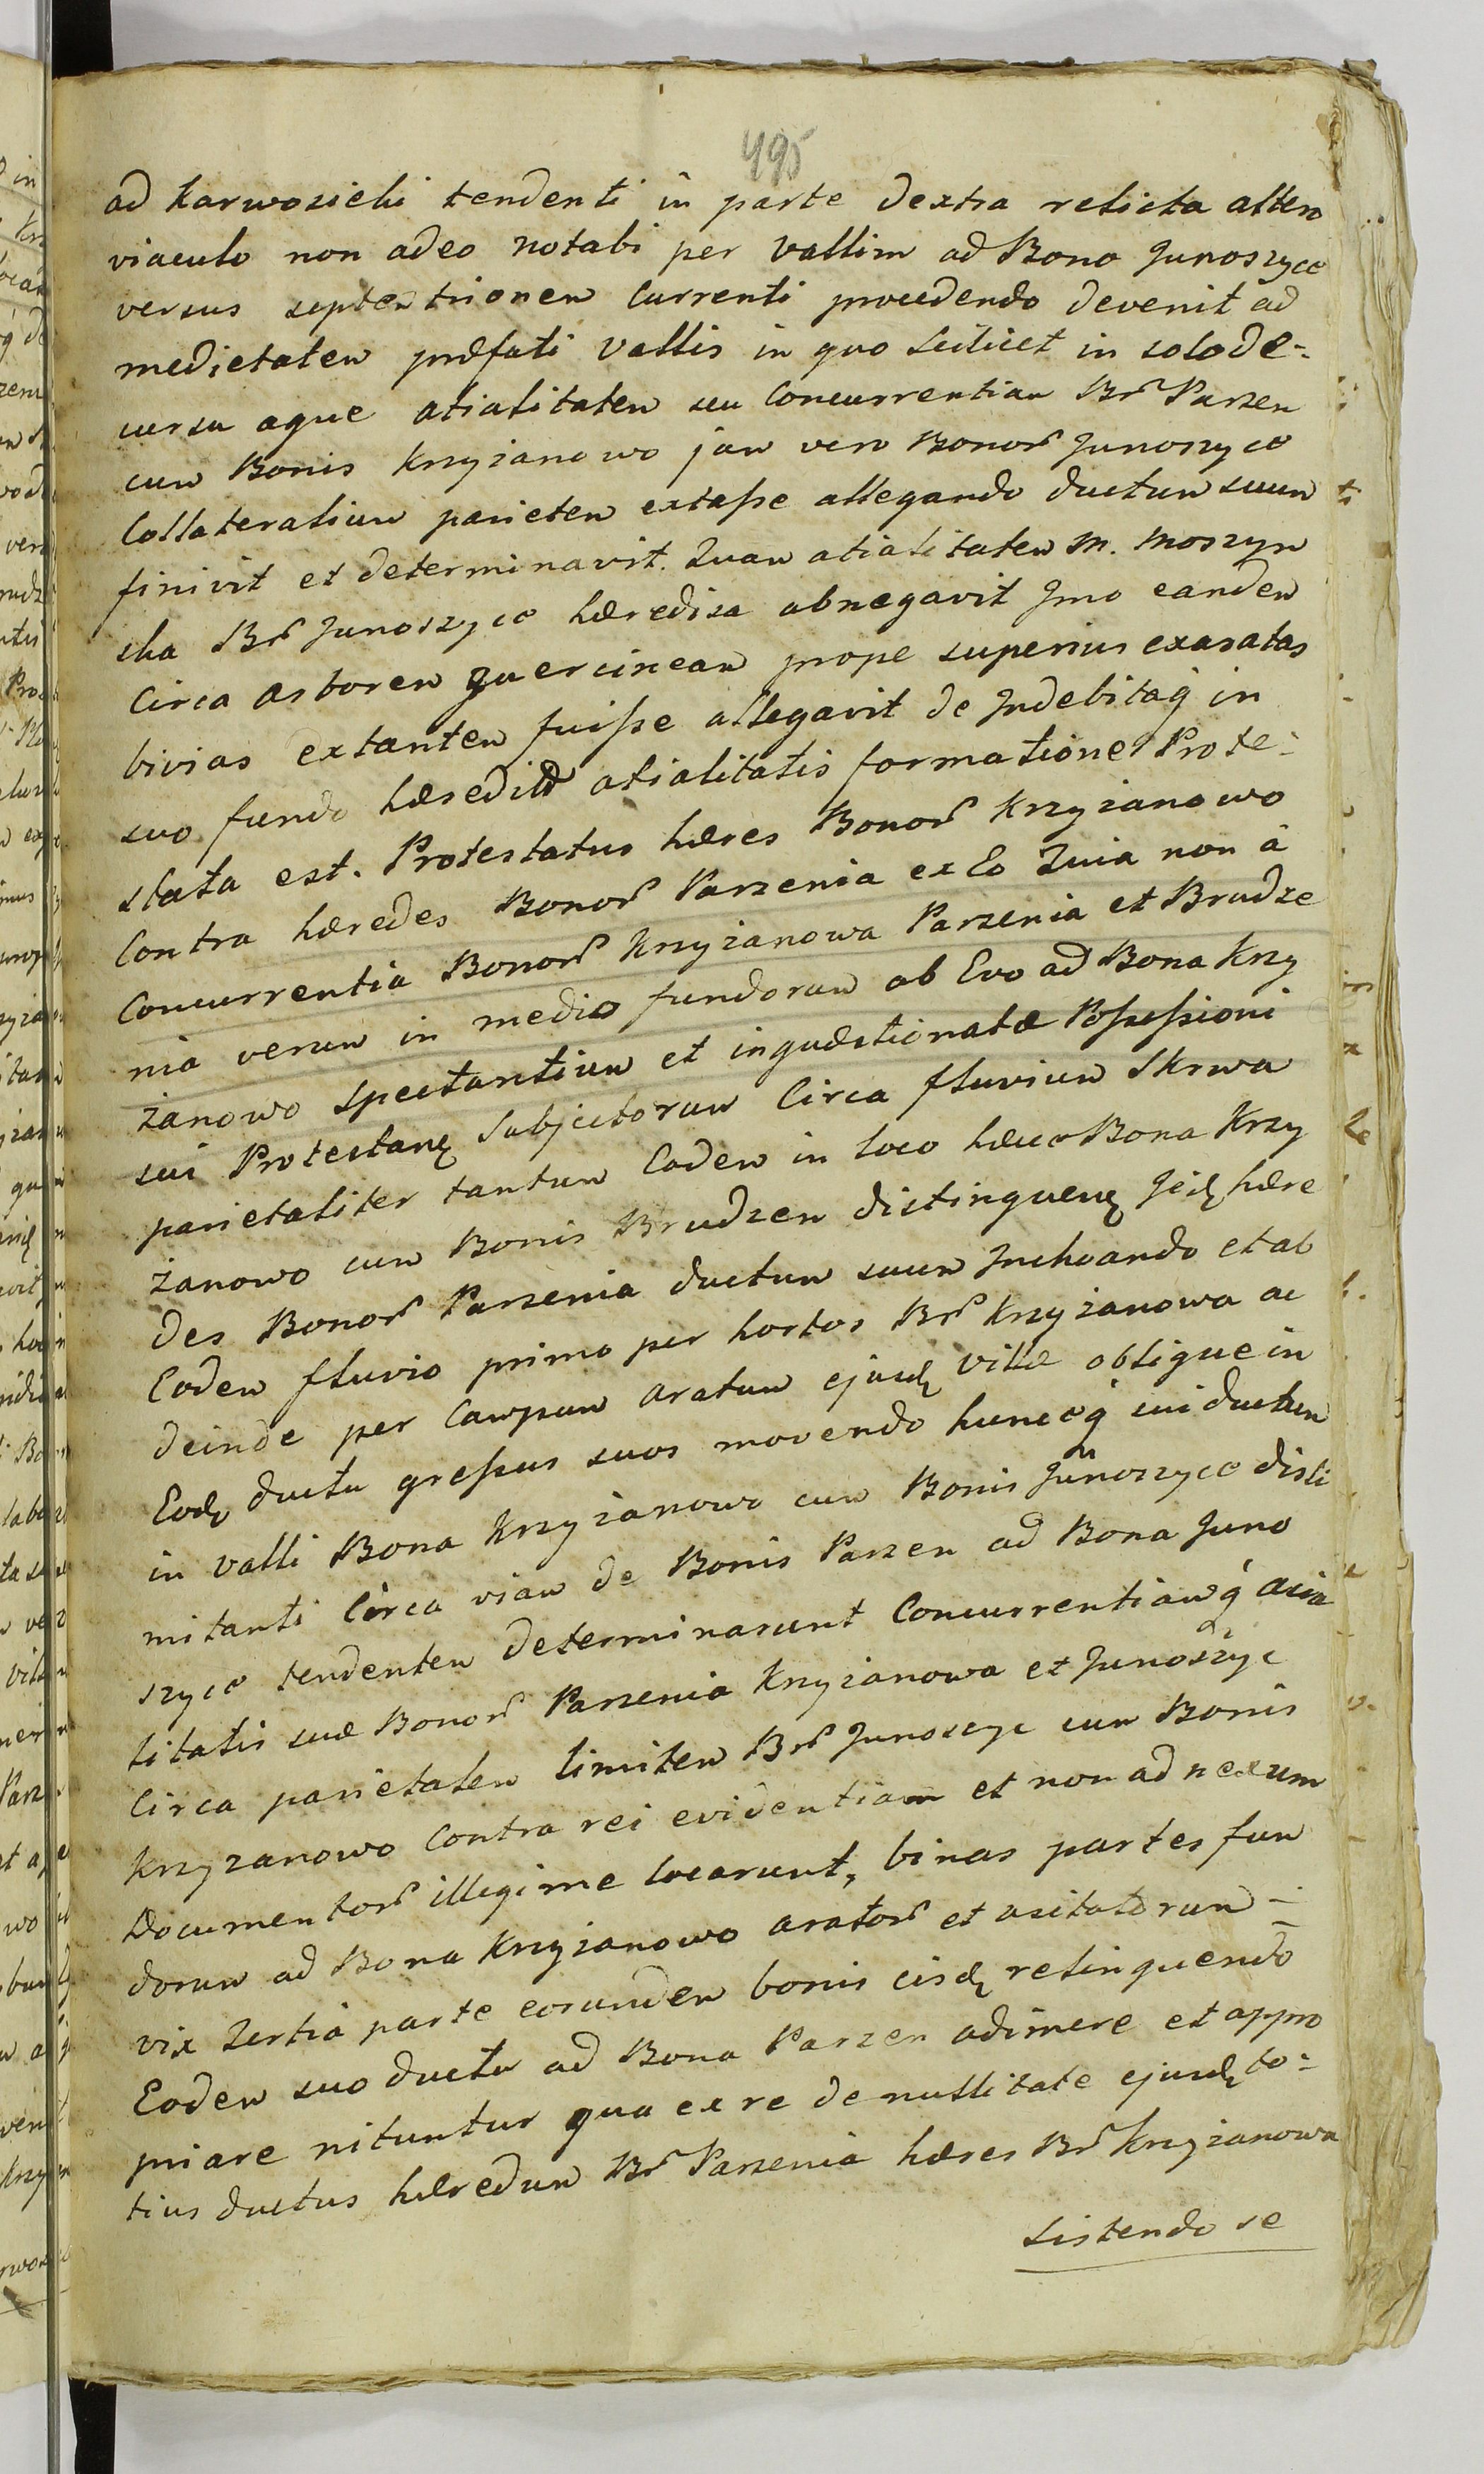 495
ad Karwosieki tendenti in parte dextra relicta altero
viaculo non adeo notabi per vallim ad Bono Junoszyce
versus septentrionem currenti procedendo devenit ad
medietatem præfati vallis in quo scilicet in solo de-
cursu aque acialitatem seu concurrentiam Br̃ Parzen
cum Bonis Krzyżanowo jam vero Bonor̃ Junoszyce
Collateralium parietem extasse allegando ductum suum
finivit et determinavit. Quam acialitatem M. Moszyn
ska Br̃ Junoszyce hæredisa abnegavit Jmo eandem
Circa arborem quercineam prope superius exaratas
bivias extantem fuisse allegavit de Indebitaq́ in
suo fundo hæredit̃ acialitatis formatione Prote-
stata est. Protestatus hæres Bonor̃ Krzyżanowo
Contra hæredes Bonor̃ Parzenia ex Eo Quia non à
Concurrentia Bonor̃ Krzyżanowa Parzenia et Brudze
nia verum in medio fundorum ab Evo ad Bona Krzy
żanowo spectantium et inquæstionatæ Possessioni
sui Protestanẹ subjectorum Circa fluvium Skrwa
parietaliter tantum Eodem in loco hæcce Bona Krzy
żanowo cum Bonis Brudzen distinguenẹ iidẹ hære
des Bonor̃ Parzenia ductum suum Inchoando et ab
Eodem fluvio primo per hortos Br̃ Krzyżanowa ac
deinde per Campum aratum ejusdẹ villæ oblique in
Eodẹ ductu gressus suos movendo huncceq́ sui ductum
in valli Bona Krzyżanowo cum Bonis Junoszyce disli
mitanti Circa viam de Bonis Parzen ad Bona Juno
szyce tendentem determinarunt Concurrentiamq́ acia
litatis suæ Bonor̃ Parzenia Krzyżanowa et Junoszyc
Circa parietalem limitem Br̃ Junoszyc cum Bonis
Krzyzanowo Contra rei evidentiam et non ad nexum
Documentor̃ illegime locarunt, binas partes fun
dorum ad Bona Krzyżanowo arator̃ et usitatorum -
vix tertia parte eorundem bonis eisdẹ relinquendo
Eodem suo ductu ad Bona Parzen adimere et appro
priare nituntur qua ex re de nullitate ejusdẹ to-
tius ductus hæredum Br̃ Parzenia hæres Br̃ Krzyżanowa
Sistendo se